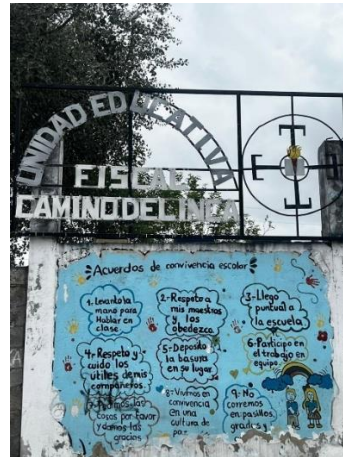 UNIDAD EDUCATIVA
FISCAL
CAMINO DEL INCA
Acuerdos de convivencia escolar
1. Levanto la
mano para
Hablar en
clase
2.- Respeto a
mis maestros
y los
obedezco
3.- Llego
puntual a
la escuela
4.- Respeto y
cuido los
útiles de mis
compañeros
5.- Deposito
la basura
en su lugar
6.- Participo en
el trabajo en
equipo
las
cosas por favor
y damos las
gracias
8.- Vivimos en
convivencia
en una
cultura de
9.- No
corremos
en pasillos,